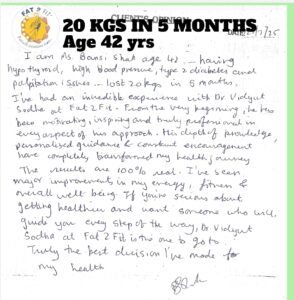 FAT 2 FIT
CLIENT'S OPINION
20 KGS IN 5 MONTHS
Age 42 yrs
I am Ms Bansi Shat age 42 - having
hypothyroid, high blood pressure, type 2 diabetes and
palpitation issues - lost 20 kgs in 5 months.
I've had an incredible experience with Dr Vidyut
Sodha at Fat 2 Fit. From the very beginning, he has
been motivating, inspiring and truly professional in
every aspect of his approach. His depth of knowledge,
personalised guidance & constant encouragement
have completely transformed my health journey
The results are 100% real. I've seen
major improvements in my energy, fitness &
overall well being. If you're serious about
getting healthier and want someone who will
guide you every step of the way, Dr Vidyut
Sodha at Fat 2 Fit is the one to go to.
Truly the best decision I've made for
my health